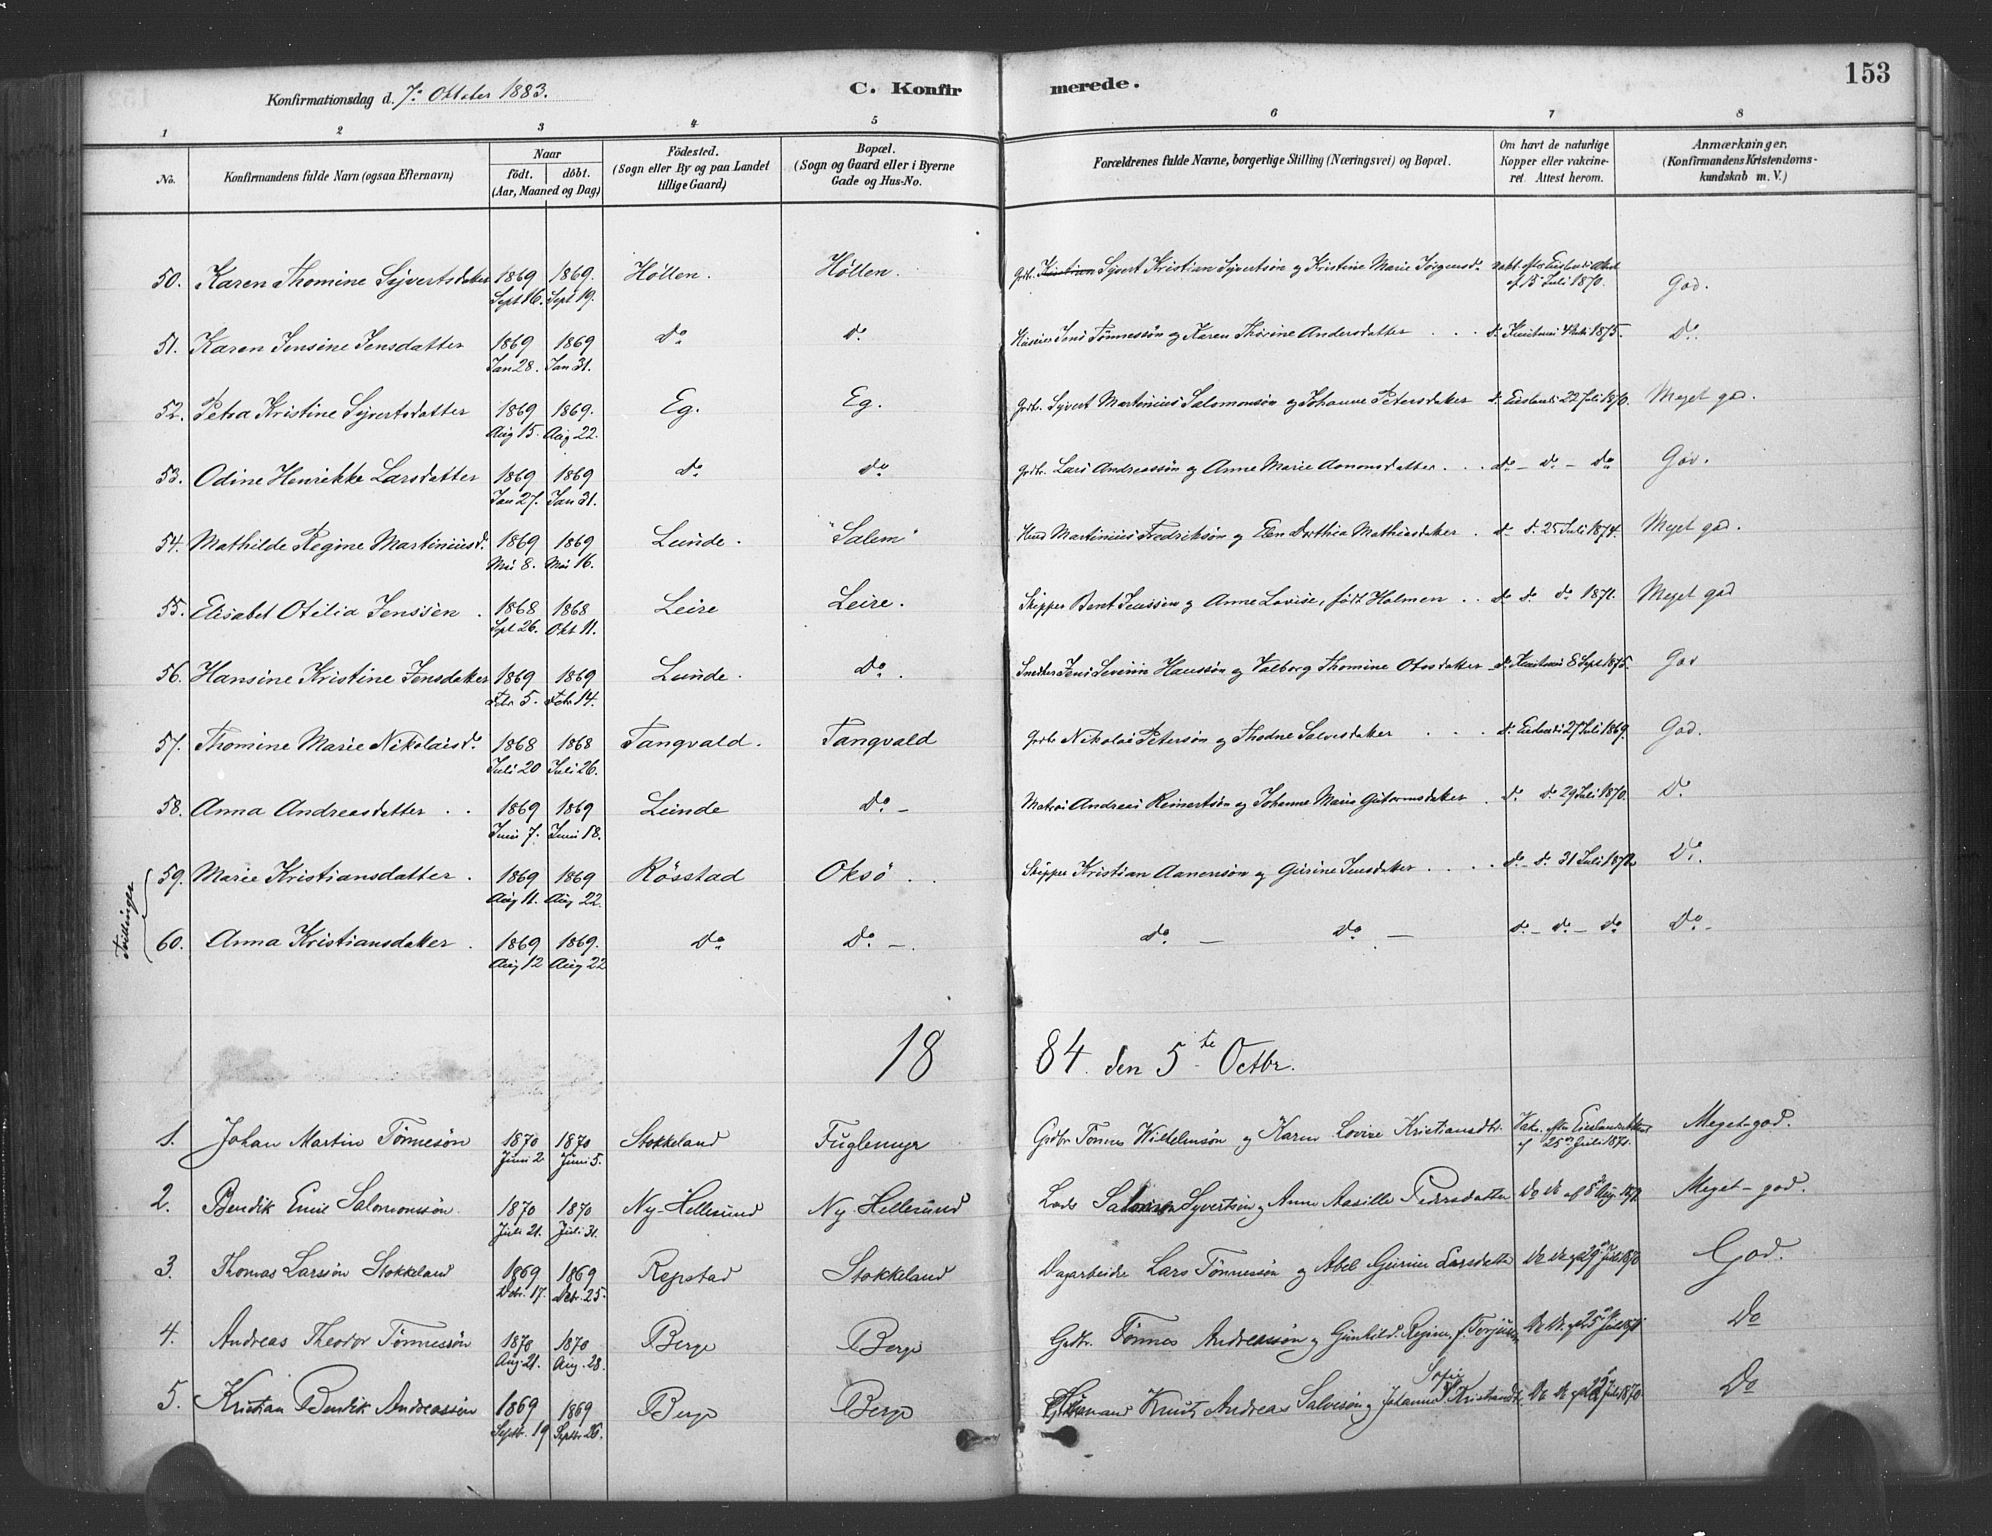 Konfirmationsdag d. 7de Oktober 1883.
C. Konfirmerede.
153
1 2 3 4 5 6 7 8
No.
Konfirmandens fulde Navn (ogsaa Efternavn)
Naar
født. døbt.
(Aar, Maaned og Dag)
Födested.
(Sogn eller By og paa Landet
tillige Gaard)
Bopæl.
(Sogn og Gaard eller i Byerne
Gade og Hus-No.
Forældrenes fulde Navne, borgerlige Stilling (Næringsvei) og Bopæl.
Om havt de naturlige
Kopper eller vakcine-
ret. Attest herom.
Anmærkninger.
(Konfirmandens Kristendoms-
kundskab m. V.)
50. Karen Thomine Syvertsdatter 1869 Sept 16. 1869. Sept 19. Höllen. Höllen. Gdbr. Kristian Syvert Kristian Syvertsön og Kristine Marie Jörgensd. af 15 Juli 1870. God.
51. Karen Jensine Jensdatter 1869 Jan 28. 1869 Jan 31. Do Do. Jens Tönnessön og Karen Thorine Andersdatter Do 1875. Do.
52. Petra Kristine Syvertsdatter 1869 Aug 15. 1869. Aug 22. Eg. Eg. Gdbr. Syvert Martinius Salomonsön og Johanne Petersdatter Do 22 Juli 1870. Meget god.
53. Odine Henrikke Larsdatter 1869 Jan 27. 1869 Jan 31. Do Do Gdbr. Lars Andreassön og Anne Marie Aanonsdatter Do - Do - Do God.
54. Mathilde Regine Martiniusd. 1869 Mai 8. 1869 Mai 16. Lunde. "Salem" Martinius Fredriksön og Elen Dorthea Mathiasdatter. Do D. 25 Juli 1874. Meget god.
55. Elisabet Otilia Jenssen. 1868 Spt 26. 1868 Okt 11. Leire Leire. Skipper Bent Jenssen og Anne Lovise, født Holmen Do Do Do 1871. Meget god
56. Hansine Kristine Jensdatter 1869 Febr 5. 1869 Febr 14. Lunde. Do. Snedker Jens Severin Hanssön og Valborg Thomine Olasdatter Do 8 Sept 1875. God
57. Thomine Marie Nikolaisd. 1868 Juli 20 1868 Juli 26. Tangvald. Tangvald Gdbr Nikolai Petersön og Thodne Salvesdatter Do 27 Juli 1869. God.
58. Anna Andreasdatter 1869 Juni 7. 1869 Juni 18. Lunde Do - Matros Andreas Reinertsön og Johanne Marie Gutormsdatter. Do Do 29 Juli 1870. Do
Tvillinger
59. Marie Kristiansdatter. 1869 Aug 11. 1869 Aug 22. Rösstad Oksö. Skipper Kristian Aanensön og Gurine Jensdatter Do - D. 31 Juli 1872 Do.
60. Anna Kristiansdatter. 1869 Aug 12 1869. Aug 22 Do Do - Do - Do - Do - Do - Do Do -
1884. den 5te Octbr.
1. Johan Martin Tönnesön 1870 Juni 2. 1870 Juni 5. Stokkeland Fuglemyr Gdbr Tönnes Wilhelmsön og Karen Lovise Kristiansdtr. af 25de Juli 1871. Meget god.
2. Bendik Emil Salomonssön. 1870 Juli 21. 1870 Juli 31. Ny-Hellesund Ny Hellesund Lods Salomon Syvertsen og Anne Aasille Pedersdatter Do Do af 8de Aug. 1872 Meget-god.
3. Thomas Larssön Stokkeland 1869 Dcbr. 17. 1869 Dcbr. 25. Repstad Stokkeland Dagarbeider Lars Tönnessön og Abel Gurine Larsdatter Do Do af 29de Juli 1870 God.
4. Andreas Theodor Tönnessön 1870 Aug 21. 1870 Aug. 28. Berge Berge Gdbr. Tönnes Andreassön og Gunhild Regine Do Do af 25de Juli 1871 Do
5. Kristian Bendik Andreassön 1869 Septbr. 19 1869 Septbr 26. Berge Berge Knut Andreas Salvesön og Johanne Sofie Kristiansdtr Do Do af 22de Juli 1870. Do